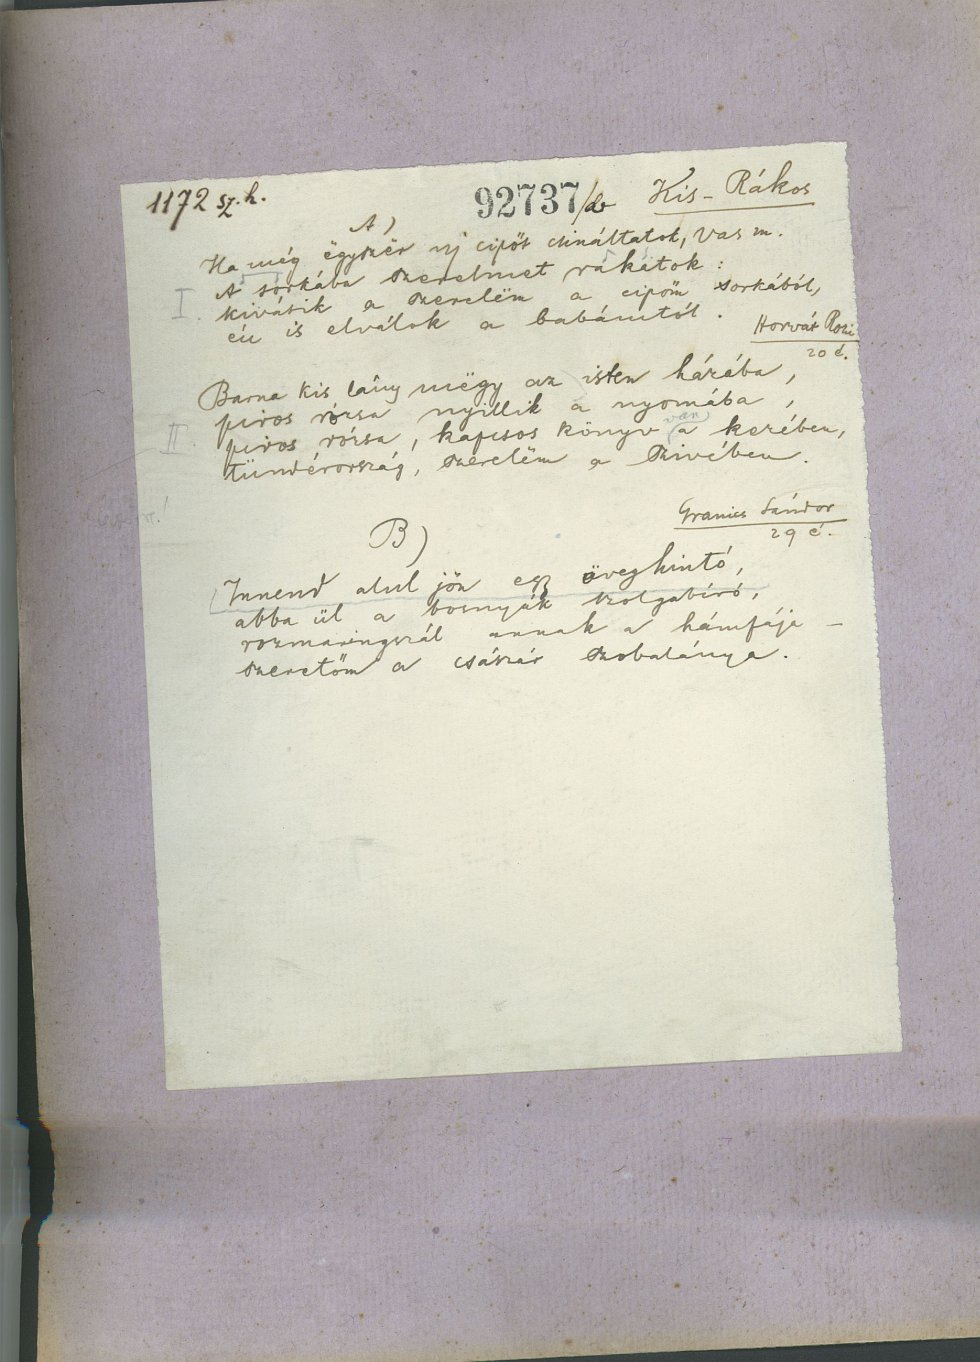 1172 sz. h.
92737/b Kis-Rákos
A)
Ha még ëgyszër uj cipőt csináltatok, Vas m.
I. A sorkába szerelmet rakatok:
kivásik a szerelëm a cipőm sorkából,
én is elválok a babámtól.
Horvát Rozi
20 é.
Barna kis lány mëgy az isten házába,
piros rózsa nyillik a nyomába,
van
II piros rózsa, kapcsos könyv a kezében,
tündérország, szerelëm a szivében.
Granics Sándor
29 é.
B)
Innend alul jön egy üveghintó,
abba ül a bosnyák szolgabíró,
rozmaringszál annak a hámfája –
szeretőm a császár szobalánya.